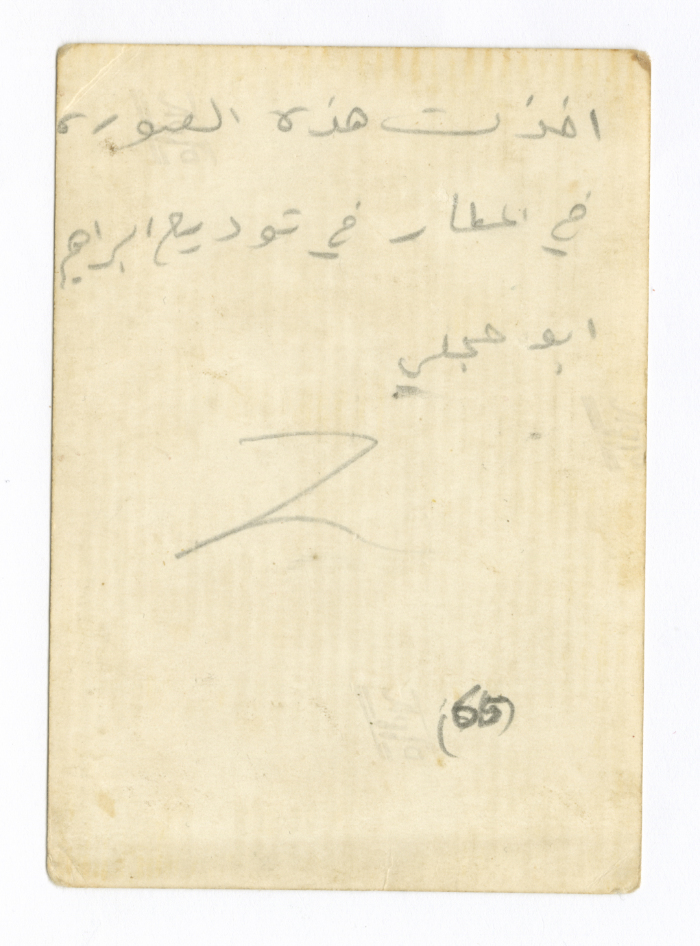 اخذت هذه الصوره
في المطار في توديع ابراهيم
ابو حجلي
(65)